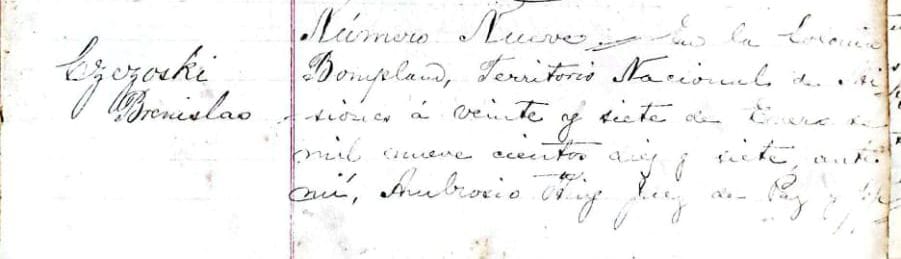 Número Nueve. En la Colonia
Czezoski
Bompland, Territorio Nacional de Mi-
Brenislao
siones á veinte y siete de Enero de
mil nueve cientos diez y siete, ante
mí, Ambrosio Juez de Paz y